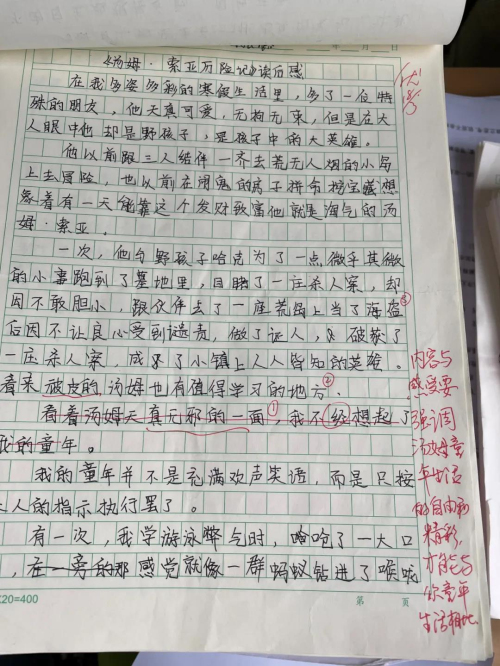 《汤姆·索亚历险记》读后感
在我多姿多彩的寒假生活里,多了一位特
殊的朋友,他天真可爱,无拘无束,但是在大
人眼中他却是野孩子,是孩子中的大英雄。
他以前跟三人结伴一齐去荒无人烟的小岛
上去冒险,也以前在闹鬼的房子拼命挖宝藏想
象着有一天能靠这个发财致富他就是淘气的汤
姆·索亚。
一次,他与野孩子哈克为了一点微乎其微
的小事跑到了墓地里,目睹了一庄杀人案,却
因不敢胆小,跟伙伴去了一座荒岛上当了海盗③
后因不让良心受到谴责,做了证人,破获了
一庄杀人案,成了小镇上人人皆知的英雄。
看来被皮的汤姆也有值得学习的地方②
看着汤姆天真无邪的一面,①我不经想起了
我的童年。
我的童年并不是充满欢声笑语,而是只按
大人的指示执行罢了。
有一次,我学游泳憋气时,呛了一大口
,在一旁的那感觉就像一群蚂蚁钻进了喉咙
内容与
感受要
强调
汤姆童
年生活
的自由和
精彩,
才能与
你童年
生活相比
20×20=400
第 页
年 月 日